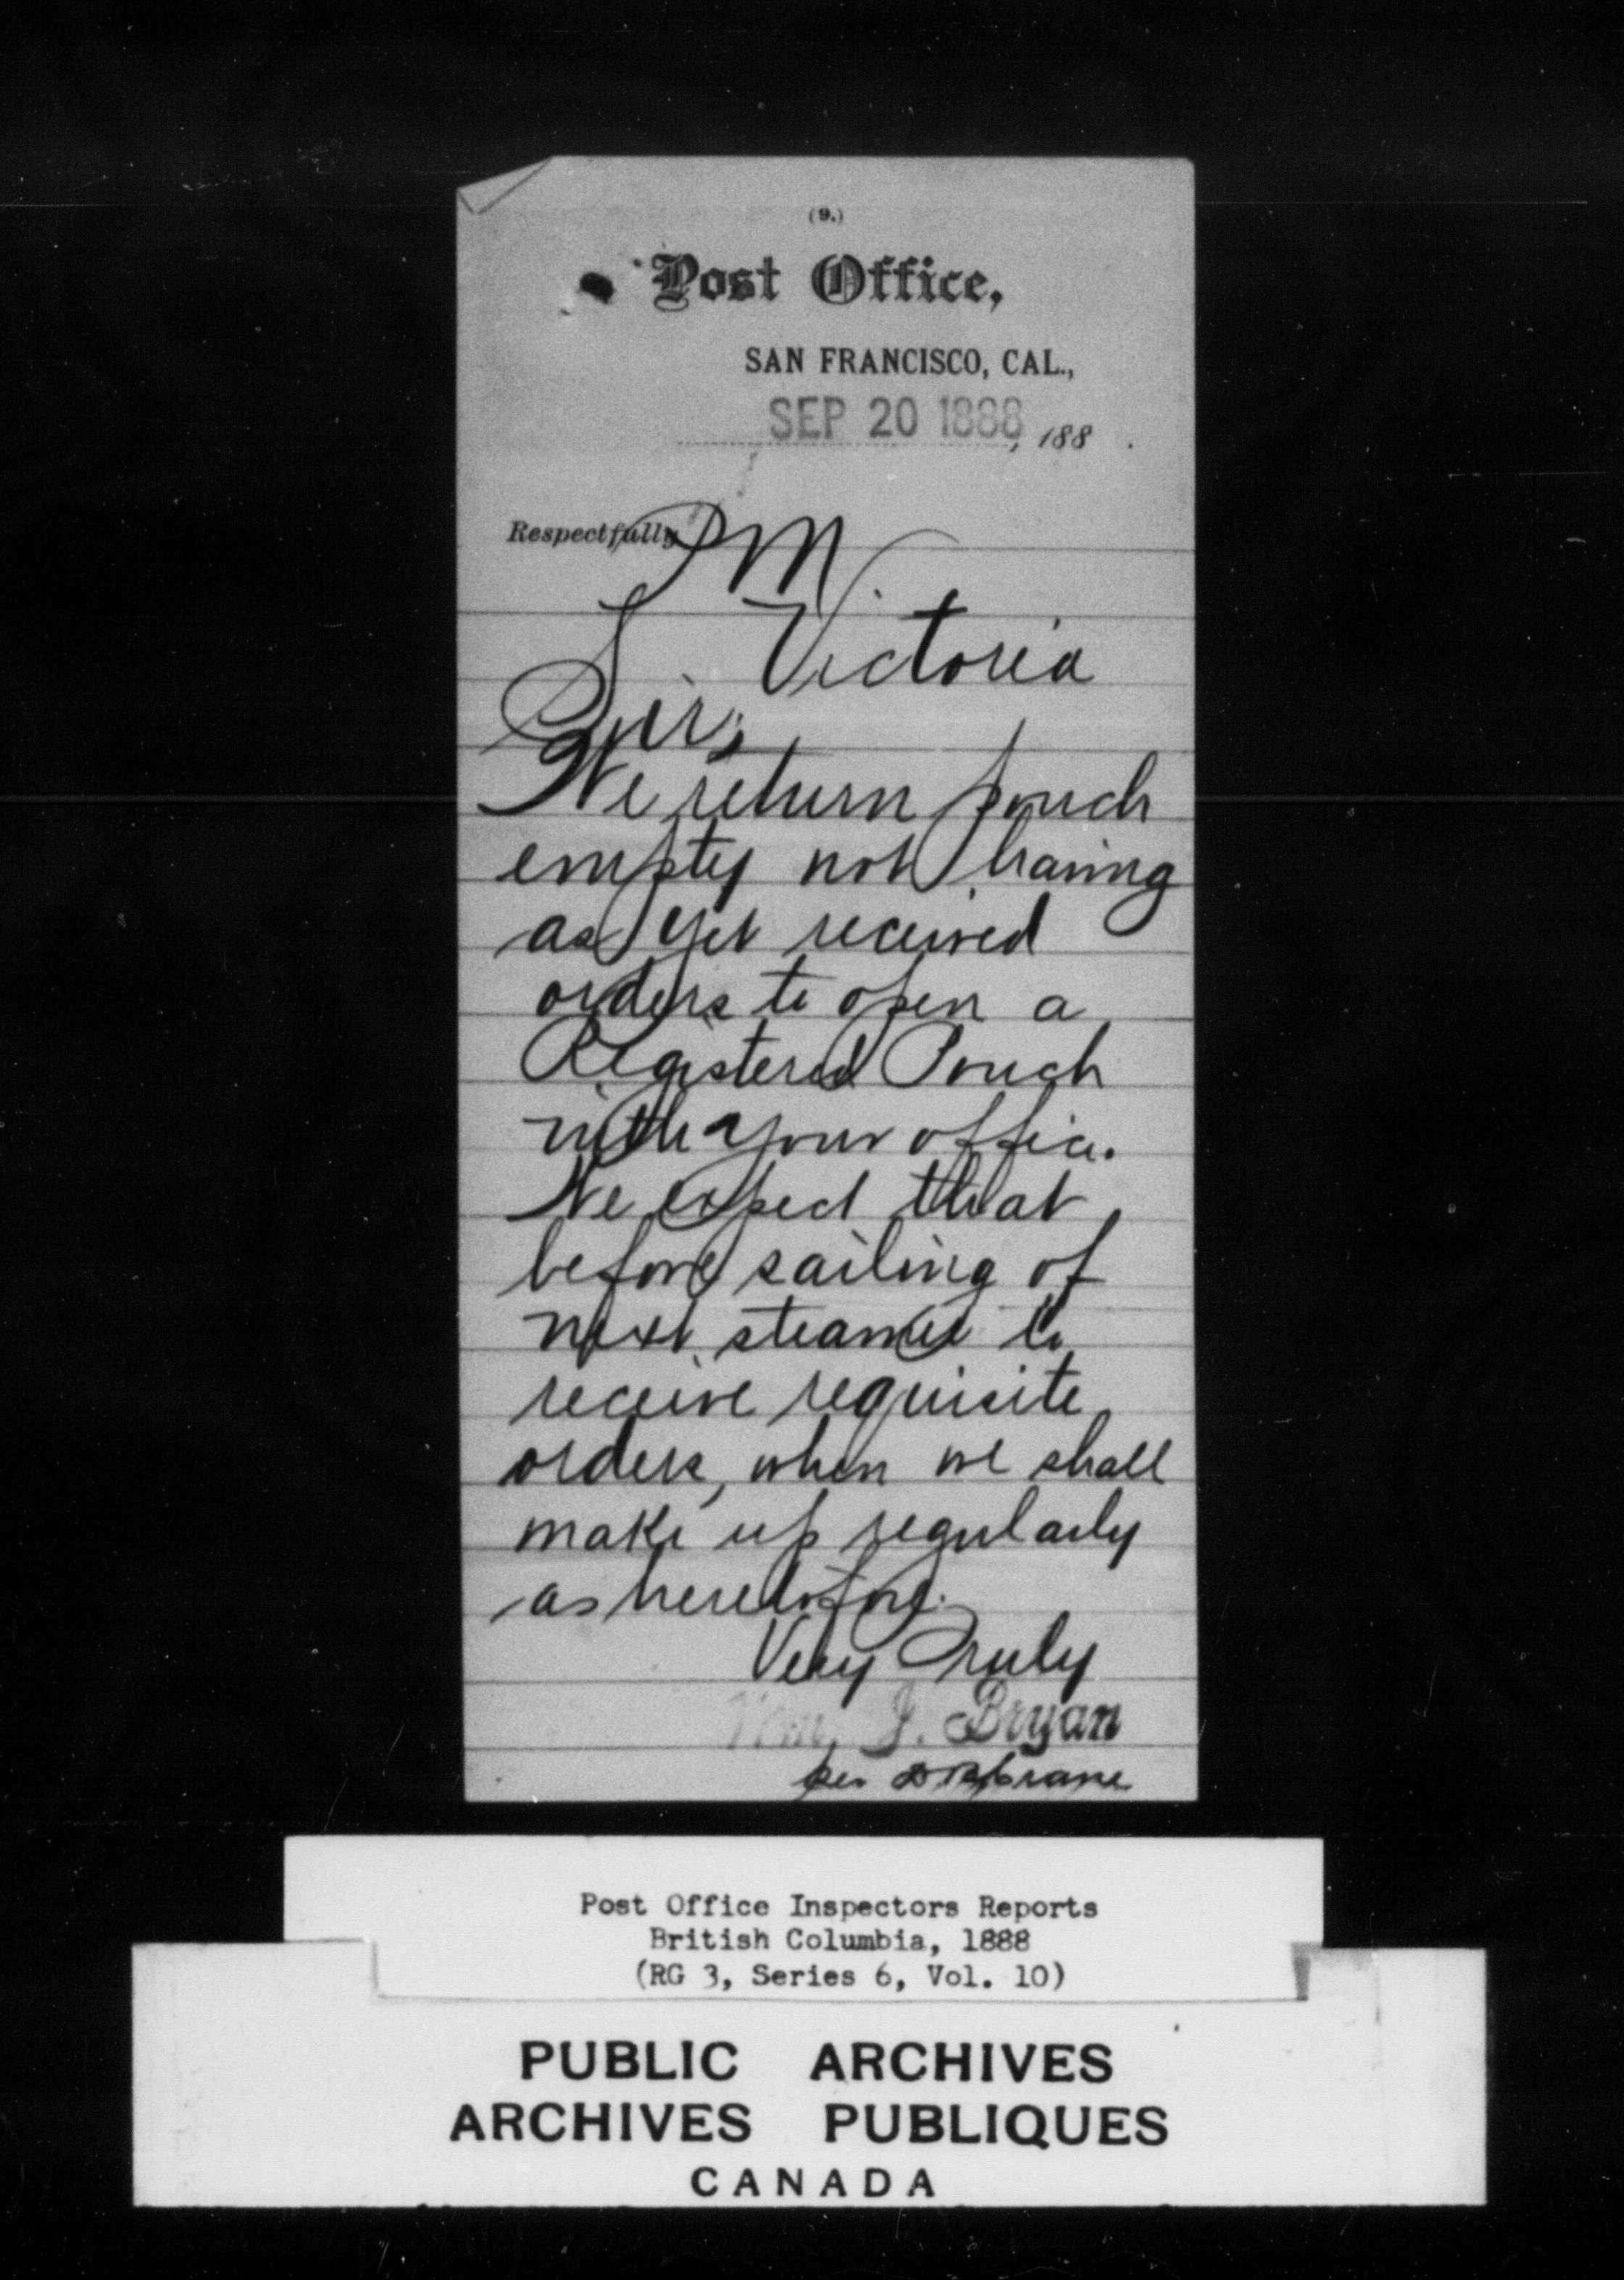 (9.)
Post Office,
SAN FRANCISCO, CAL.,
SEP 20 1888, 188 .
Respectfully PM
Victoria
Sir;
We return pouch
empty not having
as yet received
orders to open a
Registered Pouch
with your office.
We expect that
before sailing of
next steamer to
receive requisite
orders, when we shall
make up regularly
as heretofore.
Very Truly
Wm. J. Bryan
per Crane
Post Office Inspectors Reports
British Columbia, 1888
(RG 3, Series 6, Vol. 10)
PUBLIC ARCHIVES
ARCHIVES PUBLIQUES
CANADA